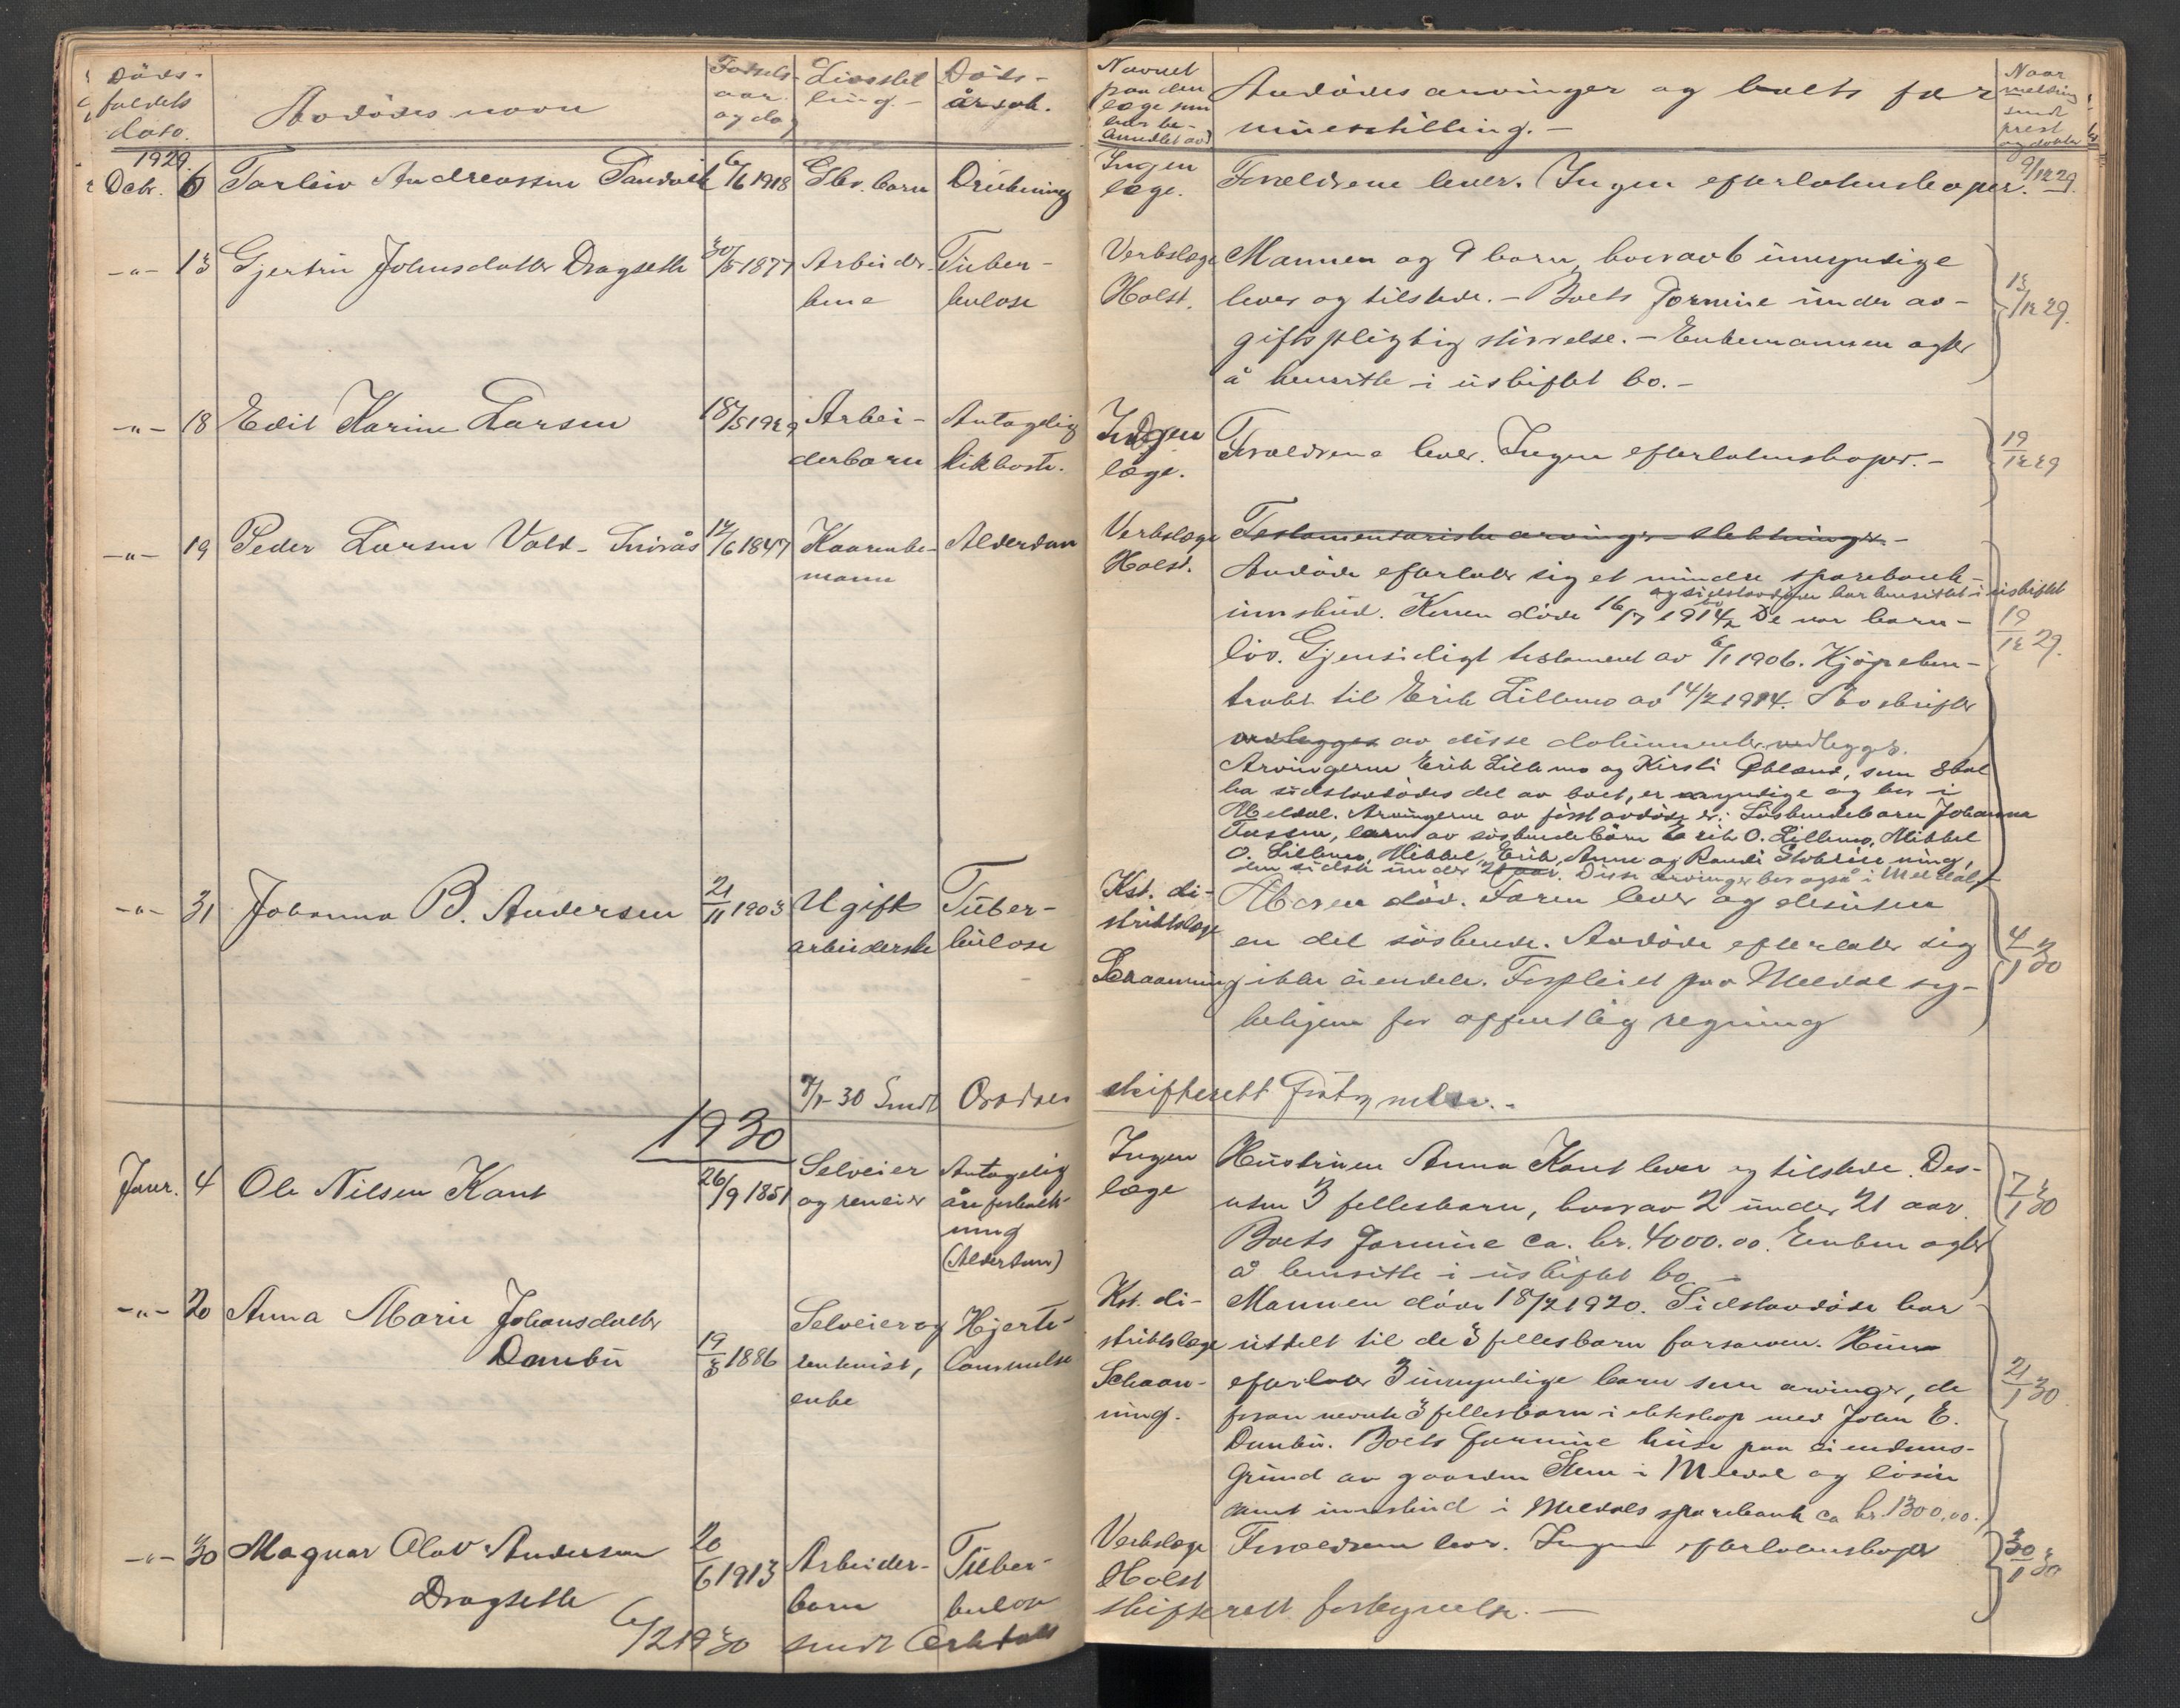 Döds-
faldets
dato.
Avdödes navn
Fødsels-
aar
og dag
Livsstil
ling.-
Døds-
årsak.
Navnet
paa den
læge som
har be-
handlet avd
Avdödes arvinger og boets for
muesstilling.-
Naar
melding
sendt
prest
og doktor
1929
Debr. 6 Torleiv Andreassen Sandvik 6/6 1918 Gbr. barn Drukning
Ingen
læge.
Forældrene lever. Ingen efterlatenskaper.
9/12 29.
-"- 13 Gjertru Johnsdatter Dragseth 30/5 1877 Arbeider-
kone
Tuber-
kulose
Verkslæge
Holst.
Mannen og 9 barn, hvorav 6 umyndige
lever og tilstede. - Boets formue under av-
giftspligtig størrelse. - Enkemannen agter
å hensitte i uskiftet bo.-
13/12 29.
-"- 18 Edit Karine Larsen 18/5 1929 Arbei-
derbarn
Antagelig
kikhoste.
Ingen
læge.
Forældrene lever. Ingen efterlatenskaper.-
19/12 29
-"- 19 Peder Larsen Vold - Snoås 12/6 1847 Kaarenke-
mann
Alderdom
Verkslæge
Holst.
Testamentariske arvinger slektninger.-
Avdöde efterlater sig et mindre sparebank-
og sidstavdöde har hensittet i uskiftet
bo
innskud. Konen döde 16/7 1914 De var barn-
lös. Gjensidigt testament av 6/1 1906. Kjöpekon-
trakt til Erik Lillemo av 14/2 1914. Avskrifter
vedlegges av disse dokumenter vedlegges.
Arvingerne Erik Lillemo og Kirsti Økland, som skal
ha sidstavdödes del av boet, er myndige og bor i
Meldal. Arvingerne av förstavdöde er: Söskendebarn Johanna
Fossen, barn av söskendebörn Erik O. Lillemo, Mikkel
O. Lillemo, Mikkel, Erik, Anne og Randi
den sidste under 21 aar. Disse arvinger bor også i Meldal
19/12 29.
-"- 31 Johanna B. Andersen 21/11 1903 Ugift
arbeiderske
Tuber-
kulose
Kst. di-
striktslæge
Schaanning
Moren död. Faren lever og desuten
en del söskende. Avdöde efterlater sig
ikke eiendele. Forpleiet paa Meldal syke-
hehjem for offentlig regning
4/1 30
7/1 - 30 Sendt Orkdal
skifterett fortegnelse.-
1930
Janr. 4 Ole Nilsen Kant 26/9 1851 Selveier
og rentier
Antagelig
åreforkalk-
ning
(Alderdom)
Ingen
læge
Hustruen Anna Kant lever og tilstede. Des-
uten 3 fellesbarn, hvorav 2 under 21 aar.
Boets formue ca. kr. 4000.00. Enken agter
å hensitte i uskiftet bo.-
7/1 30
-"- 20 Anna Marie Johansdatter
Dombu
19/3 1886 Selveier og
rentenist,
enke
Hjerte-
lammelse
Kst. di-
striktslæge
Schaan-
ning.
Mannen döde 18/2 1920. Sidstavdöde har
utdelt til de 3 fellesbarn farsarven. Hun
efterlater 3 umyndige barn som arvinger, de
foran nevnte 3 fellesbarn i ekteskap med John E.
Dombu. Boets formue huse paa eiendoms-
grund av gaarden Stem i Meldal og lösöre
samt innskud i Meldals sparebank ca kr. 1300,00.
21/1 30
-"- 30 Magnar Olav Andersen
Dragseth
20/6 1913 Arbeider-
barn
Tuber-
kulose
Verkslæge
Holst
Forældrene lever. Ingen efterlatenskaper
30/1 30
6/2 1930 sendt Orkdal
skifterett fortegnelse.-